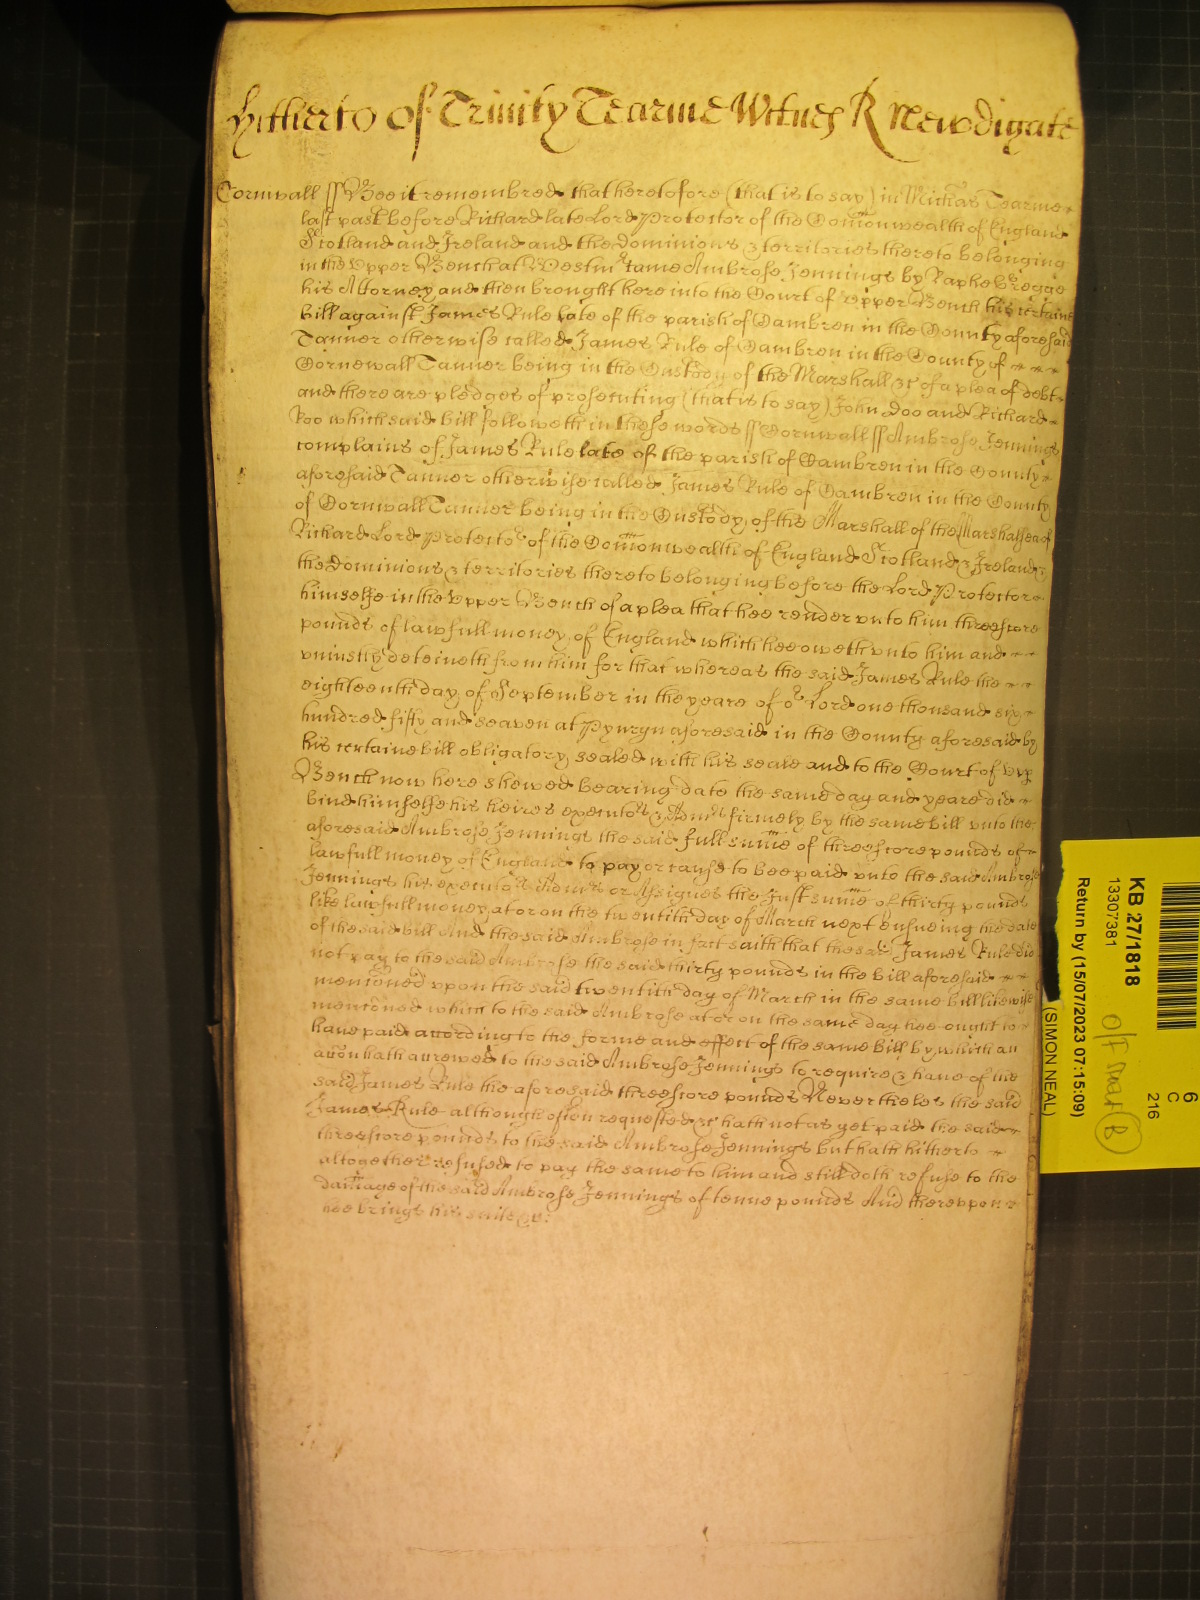 Hitherto of Trinity Tearme Witnes R Newdigate
Cornwall ss Bee it remembred that heretofore (that is to say) in Michas Tearme
last past before Richard late Lord Protector of the Comonwealth of England
Scotland and Ireland and the dominions & territories thereto belonging
in the Upper Bench at Westmr came Ambrose Jennings by Raphe Gregge
his Attorney and then brought here into the Court of upper Bench his certaine
bill against James Rule late of the parish of Cambren in the County aforesaid
Tanner otherwise called James Rule of Cambren in the County of
Cornewall Tanner being in the Custody of the Marshall &c of a plea of debt
and there are pledges of prosecuting (that is to say) John Doo and Richard
Roo which said bill followeth in these words ss Cornwall ss Ambrose Jennings
complains of James Rule late of the parish of Cambren in the County
aforesaid Tanner otherwise called James Rule of Cambren in the County
of Cornwall Tanner being in the Custody of the Marshall of the Marshalsea of
Richard Lord Protector of the Comonwealth of England Scotland & Ireland &
the dominions & territories thereto belonging before the Lord Protector
himselfe in the Upper Bench of a plea that hee render vnto him threescore
pounds of lawfull money of England which hee oweth vnto him and
vniustly deteineth from him for that whereas the said James Rule the
eighteenth day of September in the yeare of or Lord one thousand six
hundred fifty and seaven at Pynryn aforesaid in the County aforesaid by
his certaine bill obligatory sealed with his seale and to the Court of vpp
Bench now here shewed bearing date the same day and yeare did
bind himselfe his heires executors & Admrs firmely by the same bill vnto the
aforesaid Ambrose Jennings the said full sume of threescore pounds of
lawfull money of England to pay or cause to bee paid vnto the said Ambrose
Jennings his executors Admrs or Assignes the Just sume of thirty pounds
like lawfull money at or on the twentith day of March next ensueing the date
of the said bill And the said Ambrose in fact saith that the said James Rule did
not pay to the said Ambrose the said thirty pounds in the bill aforesaid
mencioned vpon the said twentith day of March in the same bill likewise
mentoned which to the said Ambrose at or on the same day hee ought to
have paid according to the forme and effect of the same bill by which an
accon hath accrewed to the said Ambrose Jennings to require & have of the
said James Rule the aforesaid threescore pounds Neverthelos the said
James Rule although often requested &c hath not as yet paid the said
threescore pounds to the said Ambrose Jennings but hath hitherto
altogether refused to pay the same to him and still doth refuse to the
damage of the said Ambrose Jennings of tenne pounds And therevpon
hee brings his suite &c:
6
C
216
KB 27/1818
13307381
Return by (15/07/2023 07:15:09)
(SIMON NEAL)